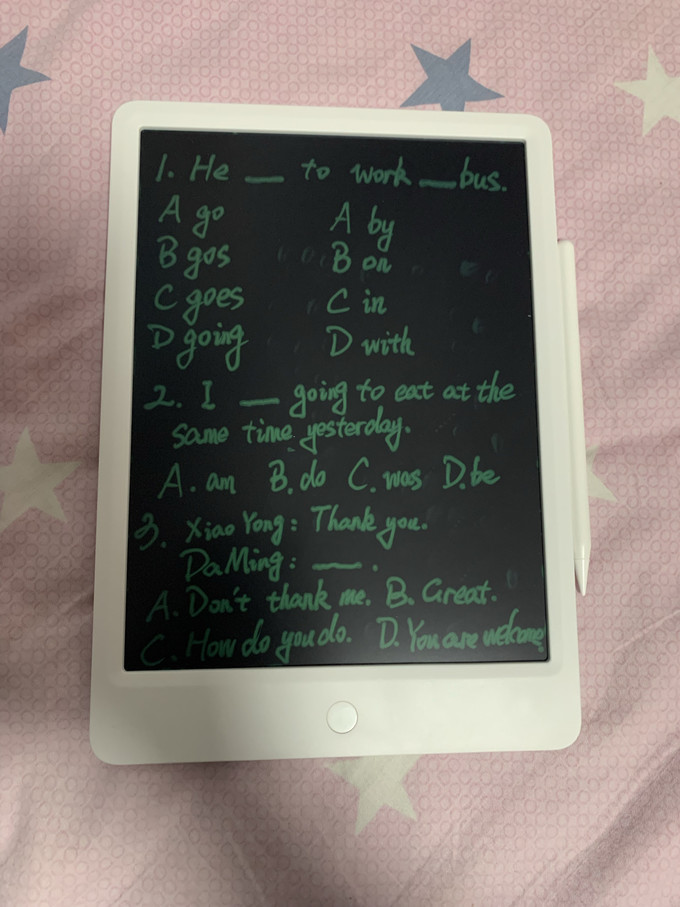 1. He __ to work __ bus.
A go A by
B gos B on
C goes C in
D going D with
2. I __ going to eat at the
same time yesterday.
A. am B. do C. was D. be
3. Xiao Yong: Thank you.
DaMing: __.
A. Don't thank me. B. Great.
C. How do you do. D. You are welcome.